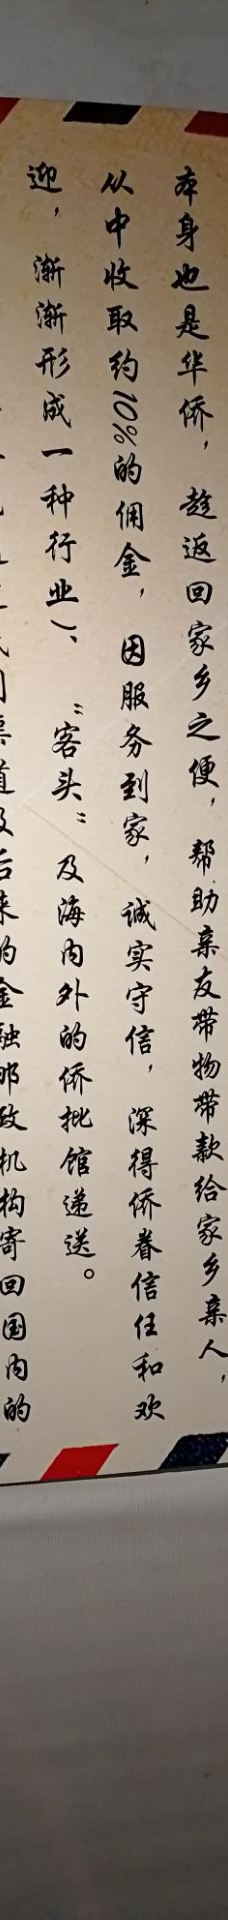 本身也是华侨，趁返回家乡之便，帮助亲友带物带款给家乡亲人，
从中收取约10%的佣金，因服务到家，诚实守信，深得侨眷信任和欢
迎，渐渐形成一种行业）、“客头”及海内外的侨批馆递送。
渠道及后来的金融邮政机构寄回国内的